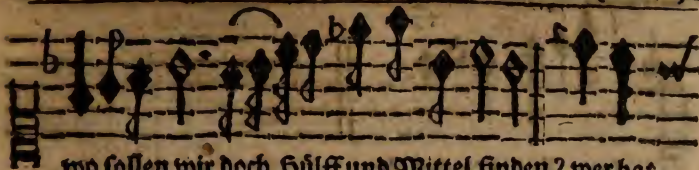 wo sollen wir doch Hülff und Mittel finden? wer hat